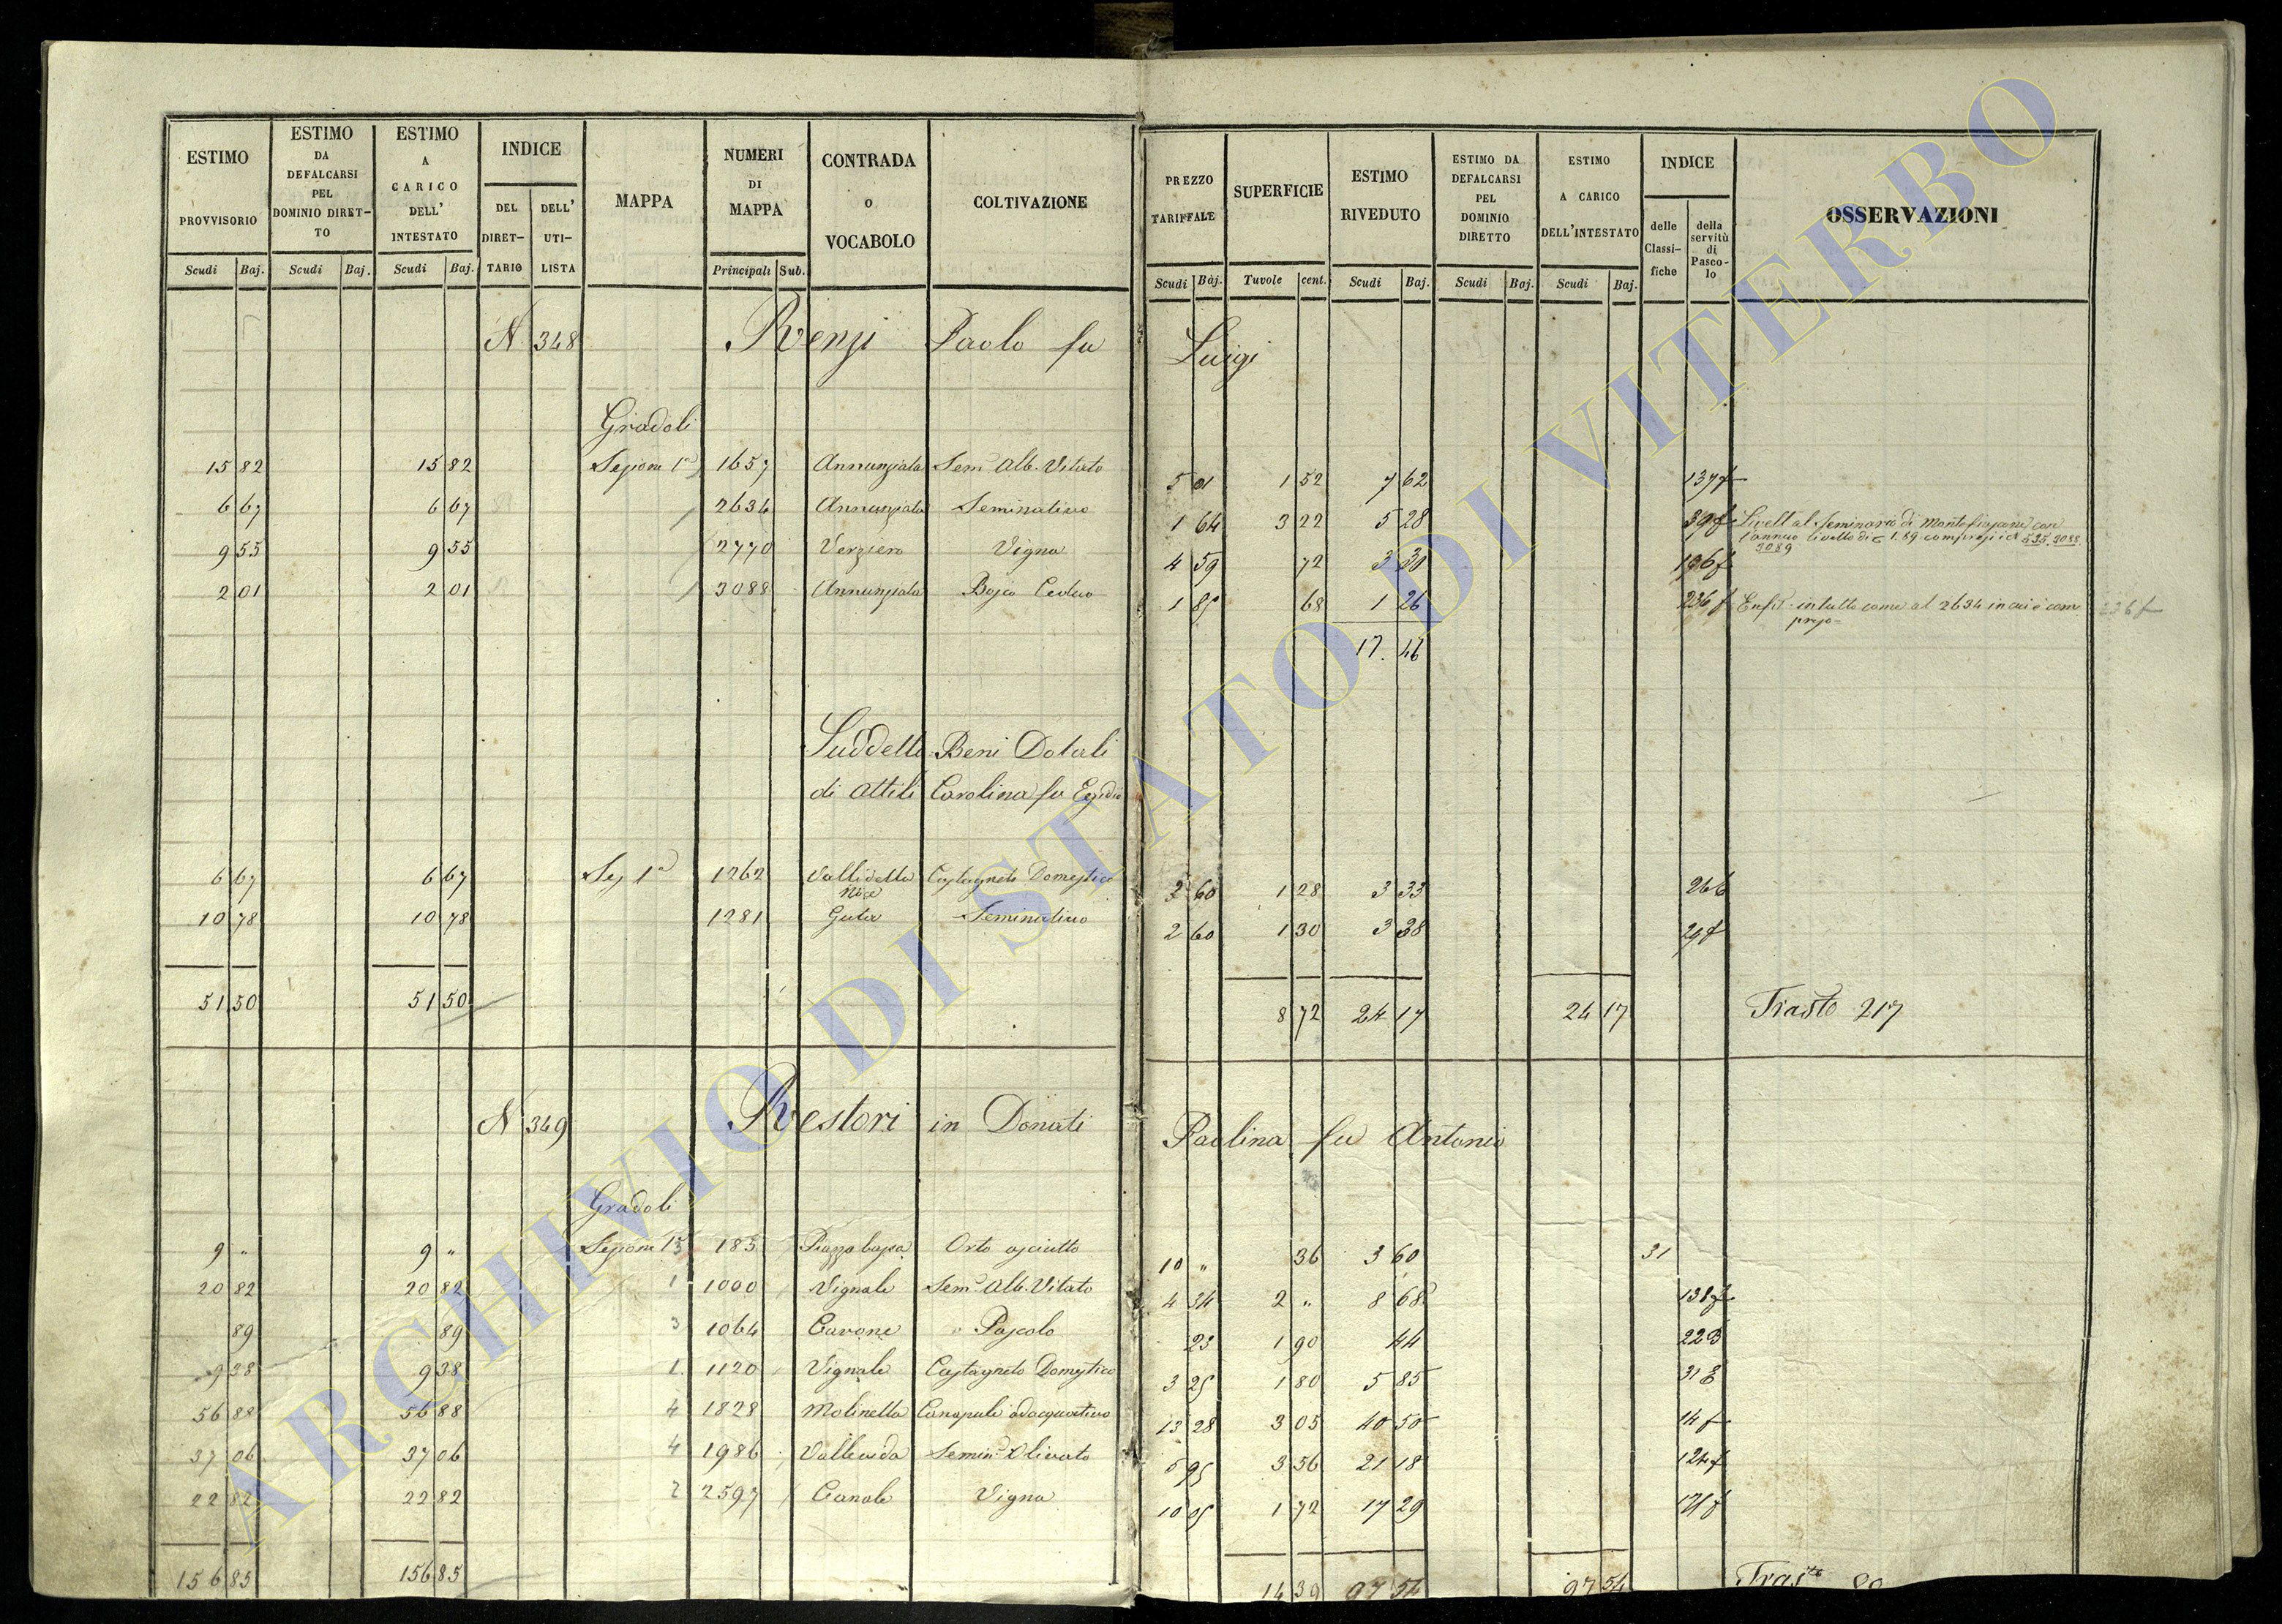 ESTIMO PROVVISORIO Scudi Baj. | ESTIMO DA DEFALCARSI PEL DOMINIO DIRET-TO Scudi Baj. | ESTIMO A CARICO DELL' INTESTATO Scudi Baj. | INDICE DEL DIRET-TARIO | DELL' UTI-LISTA | MAPPA | NUMERI DI MAPPA Principali Sub. | CONTRADA O VOCABOLO | COLTIVAZIONE | PREZZO TARIFFALE Scudi Baj. | SUPERFICIE Tavole cent. | ESTIMO RIVEDUTO Scudi Baj. | ESTIMO DA DEFALCARSI PEL DOMINIO DIRETTO Scudi Baj. | ESTIMO A CARICO DELL'INTESTATO Scudi Baj. | INDICE delle Classi-fiche | della servitù di Pasco-lo | OSSERVAZIONI
N. 348 Renzi Paolo fu Luigi
Gradoli
15 82 15 82 Sezione 1a 1657 Annunziata Semo Alb. Vitato 5 01 1 52 7 62 137f
6 67 6 67 2634 Annunziata Seminativo 1 64 3 22 5 28 39f Livell al Seminario di Montefiascone con
l'annuo livello di 1.89 compresi i N 535. 3088.
3089
9 55 9 55 2770 Verziere Vigna 4 59 72 3 30 196f
2 01 2 01 3088 Annunziata Bosco Ceduo 1 85 68 1 26 236f Enfit. in tutto come al 2634 in cui è com 236f
preso
17. 46
Suddetto Beni Dotali
di Attili Carolina fu Egidio
6 67 6 67 Sez 1a 1262 Vallidella Castagneto Domestico 2 60 1 28 3 33 266
Noce
10 78 10 78 1281 Guta Seminativo 2 60 1 30 3 38 29f
51 50 51 50 8 72 24 17 24 17 Trasto 217
N 349 Restori in Donati Paolina fu Antonio
Gradoli
9 " 9 " Sezione 1a 3 185 Piazza bassa Orto asciutto 10 " 36 3 60 31
20 82 20 82 1 1000 Vignale Semo Alb. Vitato 4 34 2 " 8 68 138f
89 89 3 1064 Cavone Pascolo 23 1 90 44 22B
9 38 9 38 1. 1120 Vignale Castagneto Domestico 3 25 1 80 5 85 31E
56 88 56 88 4 1828 Molinella Canapule adacquativo 13 28 3 05 40 50 14f
37 06 37 06 4 1986 Vallevida Semin. Olivato 5 95 3 56 21 18 124f
22 82 22 82 2 2597 Canale Vigna 10 05 1 72 17 29 171f
156 85 156 85 14 39 97 54 97 54 Trasto
ARCHIVIO DI STATO DI VITERBO